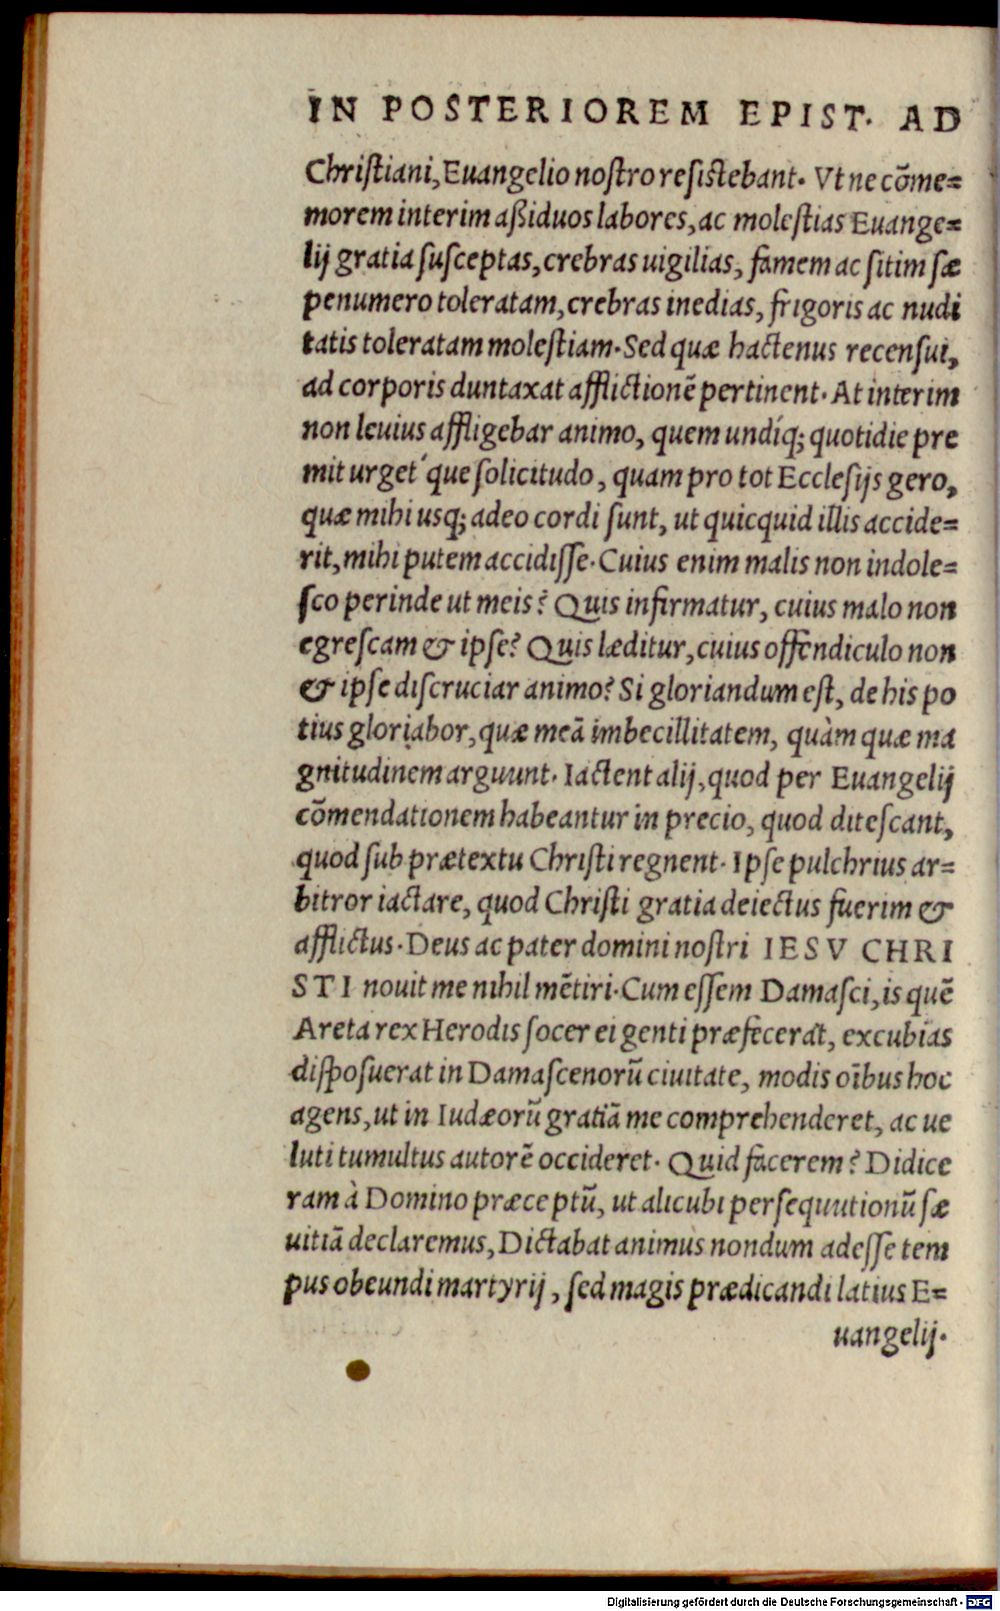 IN POSTERIOREM EPIST. AD
Chriſtiani, Euangelio noſtro reſiſtebant. Vt ne cōme=
morem interim aßiduos labores, ac moleſtias Euange=
lij gratia ſuſceptas, crebras uigilias, famem ac ſitim ſæ
penumero toleratam, crebras inedias, frigoris ac nudi
tatis toleratam moleſtiam. Sed quæ hactenus recenſui,
ad corporis duntaxat afflictionē pertinent. At interim
non leuius affligebar animo, quem undíq; quotidie pre
mit urget´que ſolicitudo, quam pro tot Eccleſijs gero,
quæ mihi usq; adeo cordi ſunt, ut quicquid illis accide=
rit, mihi putem accidiſſe. Cuius enim malis non indole=
ſco perinde ut meis? Quis infirmatur, cuius malo non
egreſcam & ipſe? Quis læditur, cuius offendiculo non
& ipſe diſcruciar animo? Si gloriandum eſt, de his po
tius gloriabor, quæ meā imbecillitatem, quàm quæ ma
gnitudinem arguunt. Iactent alij, quod per Euangelij
cōmendationem habeantur in precio, quod diteſcant,
quod ſub prætextu Chriſti regnent. Ipſe pulchrius ar=
bitror iactare, quod Chriſti gratia deiectus fuerim &
afflictus. Deus ac pater domini noſtri IESV CHRI
STI nouit me nihil mētiri. Cum eſſem Damaſci, is quē
Areta rex Herodis ſocer ei genti præfecerat, excubias
diſpoſuerat in Damaſcenorū ciuitate, modis oībus hoc
agens, ut in Iudæorū gratiā me comprehenderet, ac ue
luti tumultus autorē occideret. Quid facerem? Didice
ram à Domino præceptū, ut alicubi perſequutionū ſæ
uitiā declaremus, Dictabat animus nondum adeſſe tem
pus obeundi martyrij, ſed magis prædicandi latius E=
uangelij.
Digitalisierung gefördert durch die Deutsche Forschungsgemeinschaft - DFG